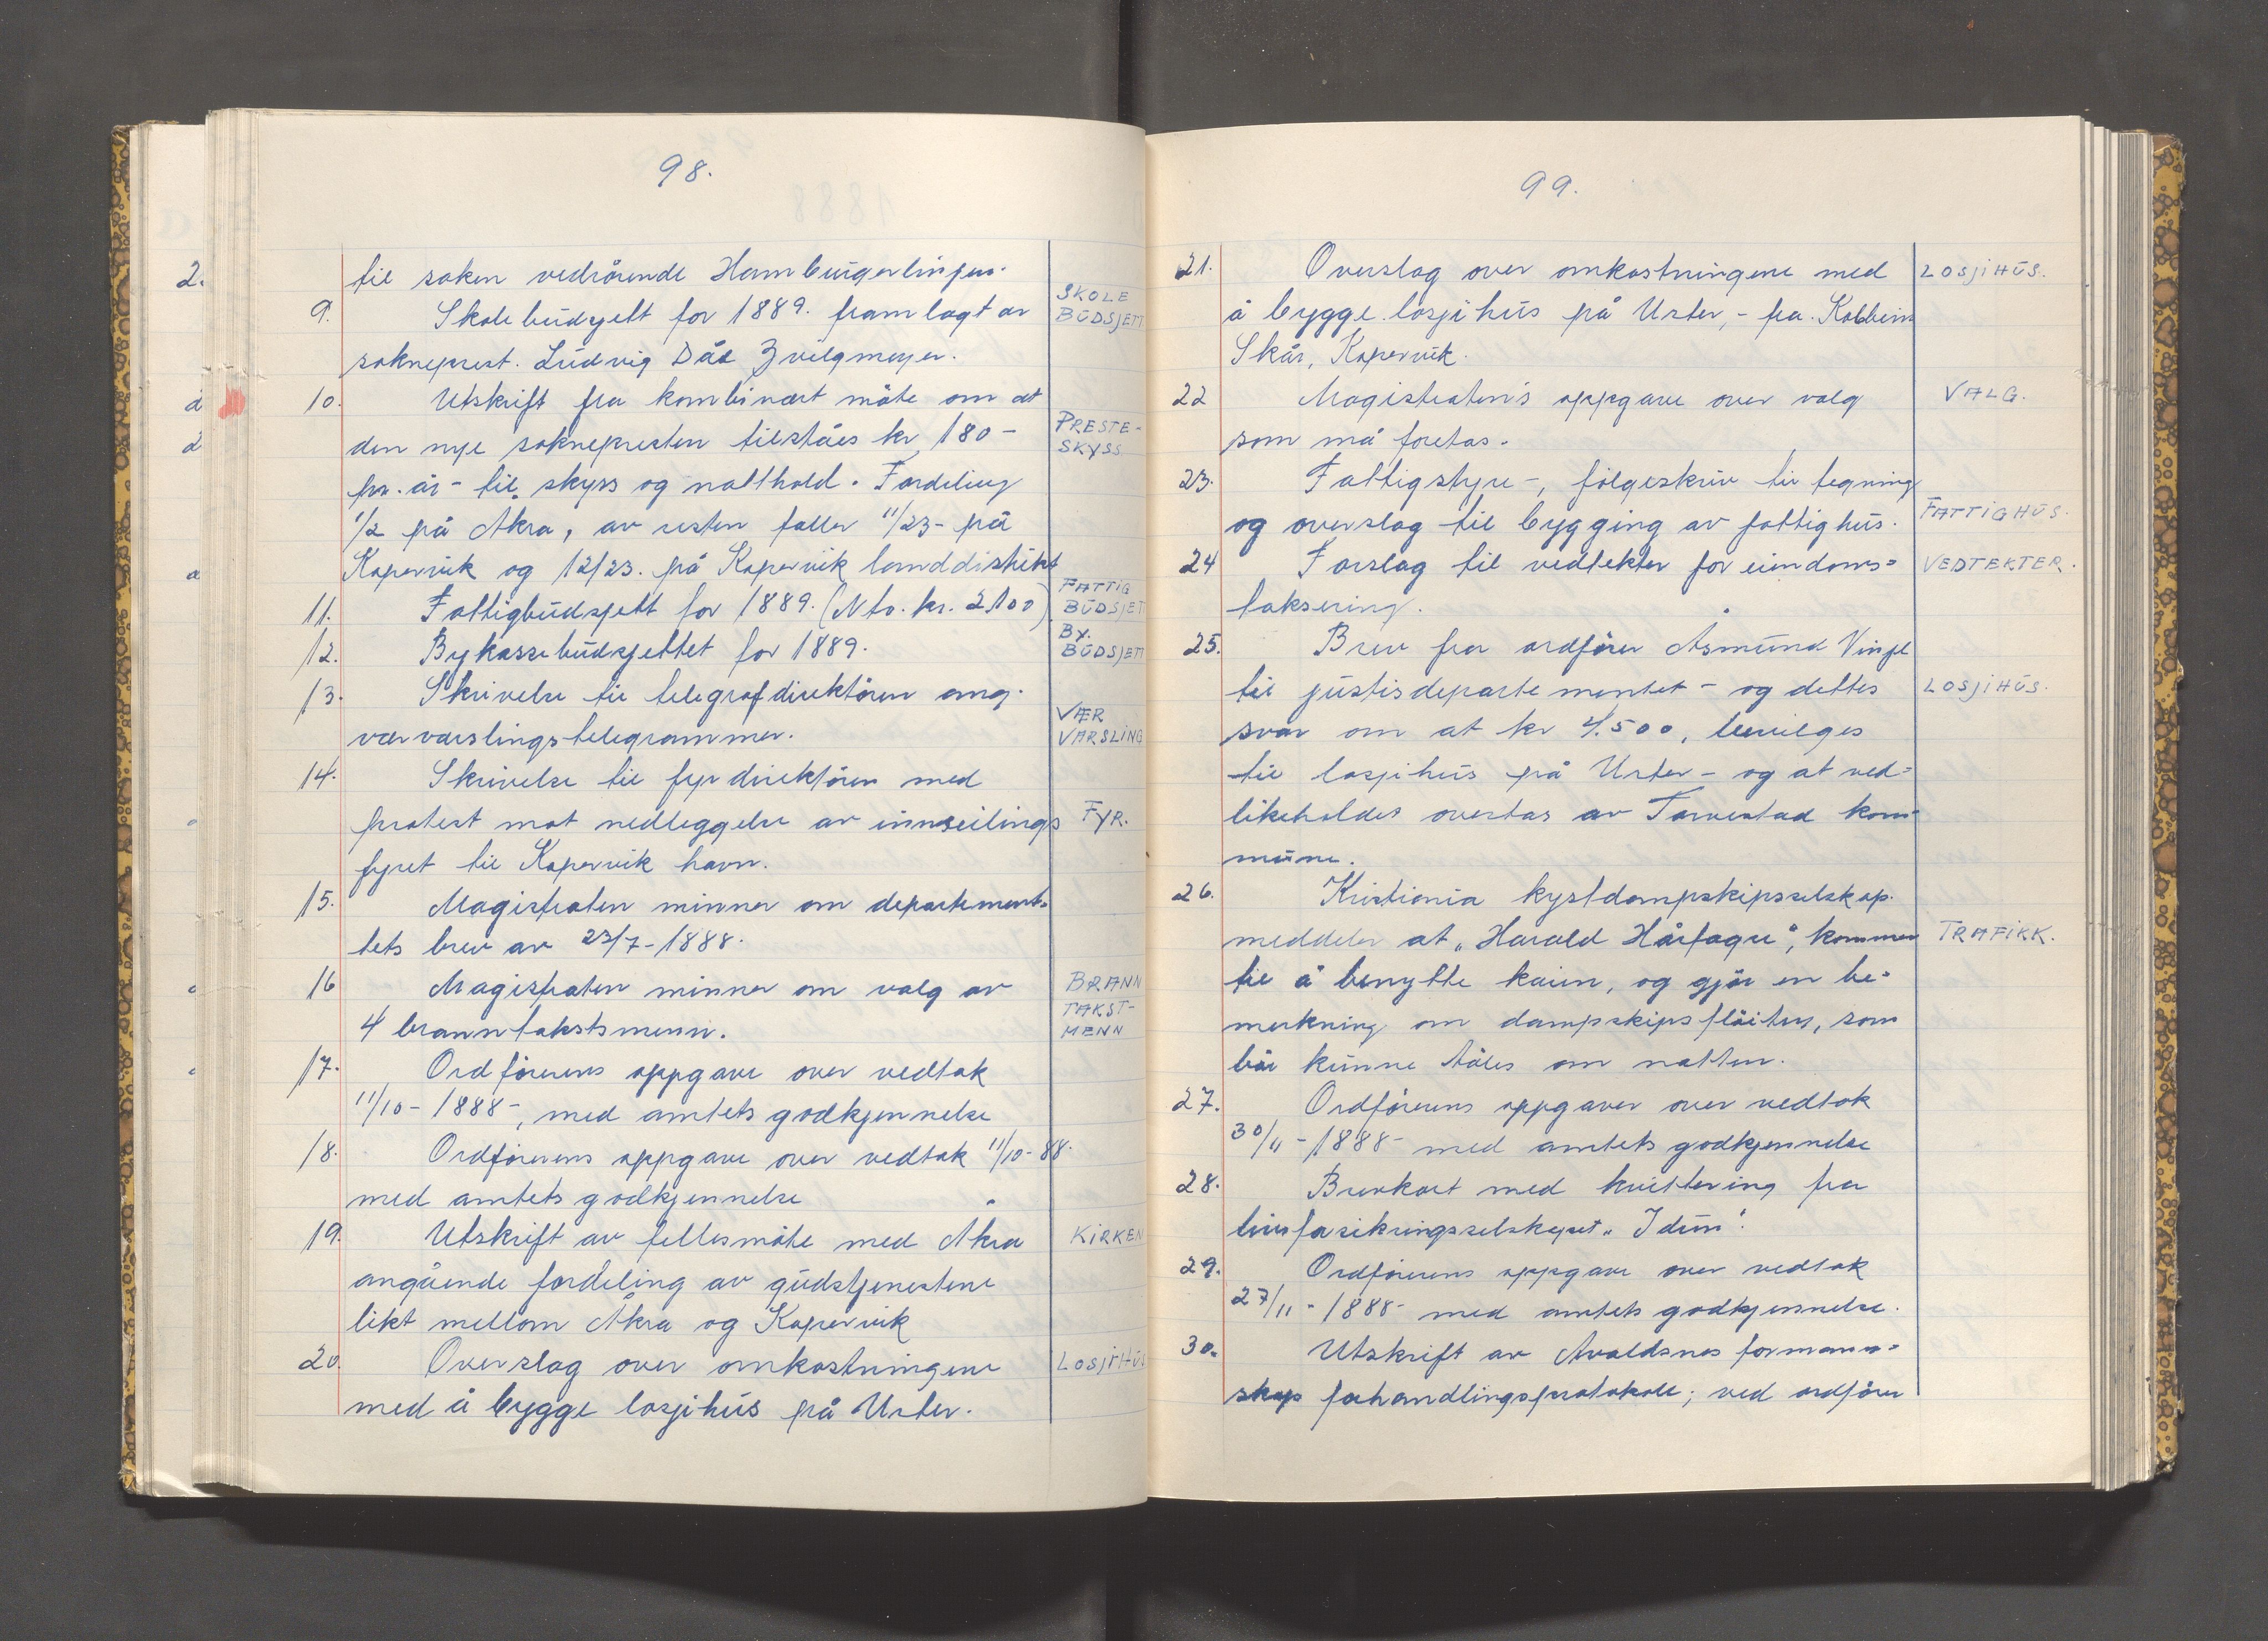 98.
til saken vedrörende Hamburgerlinjen.
9. Skolebudsjett for 1889. framlagt av SKOLE BUDSJETT
sokneprest. Ludvig Dåe Zwilgmeyer.
10. Utskrift fra kombinert möte om at
den nye soknepresten tilståes kr 180- PRESTE-SKYSS
pr. år - til skyss og natthold. Fordeling
1/2 på Åkra, av resten faller 11/23- på
Kopervik og 12/23. på Kopervik landdistrikt
11. Fattigbudsjett for 1889. (Nto. kr. 2100) FATTIG BUDSJET
12. Bykassebudsjettet for 1889. BY. BUDSJETT
13. Skrivelse til telegrafdirektören ang.
værvarslingstelegrammer. VÆR VARSLING
14. Skrivelse til fyrdirektören med
protest mot nedleggelse av innseilings FYR.
fyret til Kopervik havn.
15. Magistraten minner om departement-
tets brev av 23/7-1888.
16 Magistraten minner om valg av BRANN TAKST-MENN
4 branntakstsmenn.
17. Ordförerens oppgave over vedtak
11/10-1888-, med amtets godkjennelse
18. Ordförerens oppgave over vedtak 11/10-88.
med amtets godkjennelse
19. Utskrift av fellesmöte med Åkra KIRKEN
angående fordeling av gudstjenestene
likt mellom Åkra og Kopervik
20. Overslag over omkostningene LOSJIHUS
med å bygge losjihus på Urter.
99.
21. Overslag over omkostningene med LOSJIHUS.
å bygge losjihus på Urter, - fra. Kolbein
Skår, Kopervik.
22 Magistratens oppgave over valg VALG.
som må foretas.
23. Fattigstyre-, fölgeskriv til tegning
og overslag til bygging av fattighus. FATTIGHUS.
24 Forslag til vedtekter for eiendoms= VEDTEKTER.
taksering.
25. Brev fra ordförer Åsmund Vinje
til justisdepartementet - og dettes LOSJIHUS.
svar om at kr 4.500, bevilges
til losjihus på Urter - og at ved=
likeholdet overtas av Torvestad kom-
mune.
26. Kristiania kystdampskipsselskap.
meddeler at „Harald Hårfagre", kommer TRAFIKK.
til å benytte kaien, og gjör en be=
merkning om dampskipsflöiten, som
bör kunne tåles om natten.
27. Ordförerens oppgaver over vedtak
30/11-1888- med amtets godkjennelse
28. Brevkort med kvittering fra
livsforsikringsselskapet „Idun".
29. Ordförerens oppgave over vedtak
27/11-1888- med amtets godkjennelse.
30. Utskrift av Avaldsnes formann=
skap forhandlingsprotokoll; ved ordförer